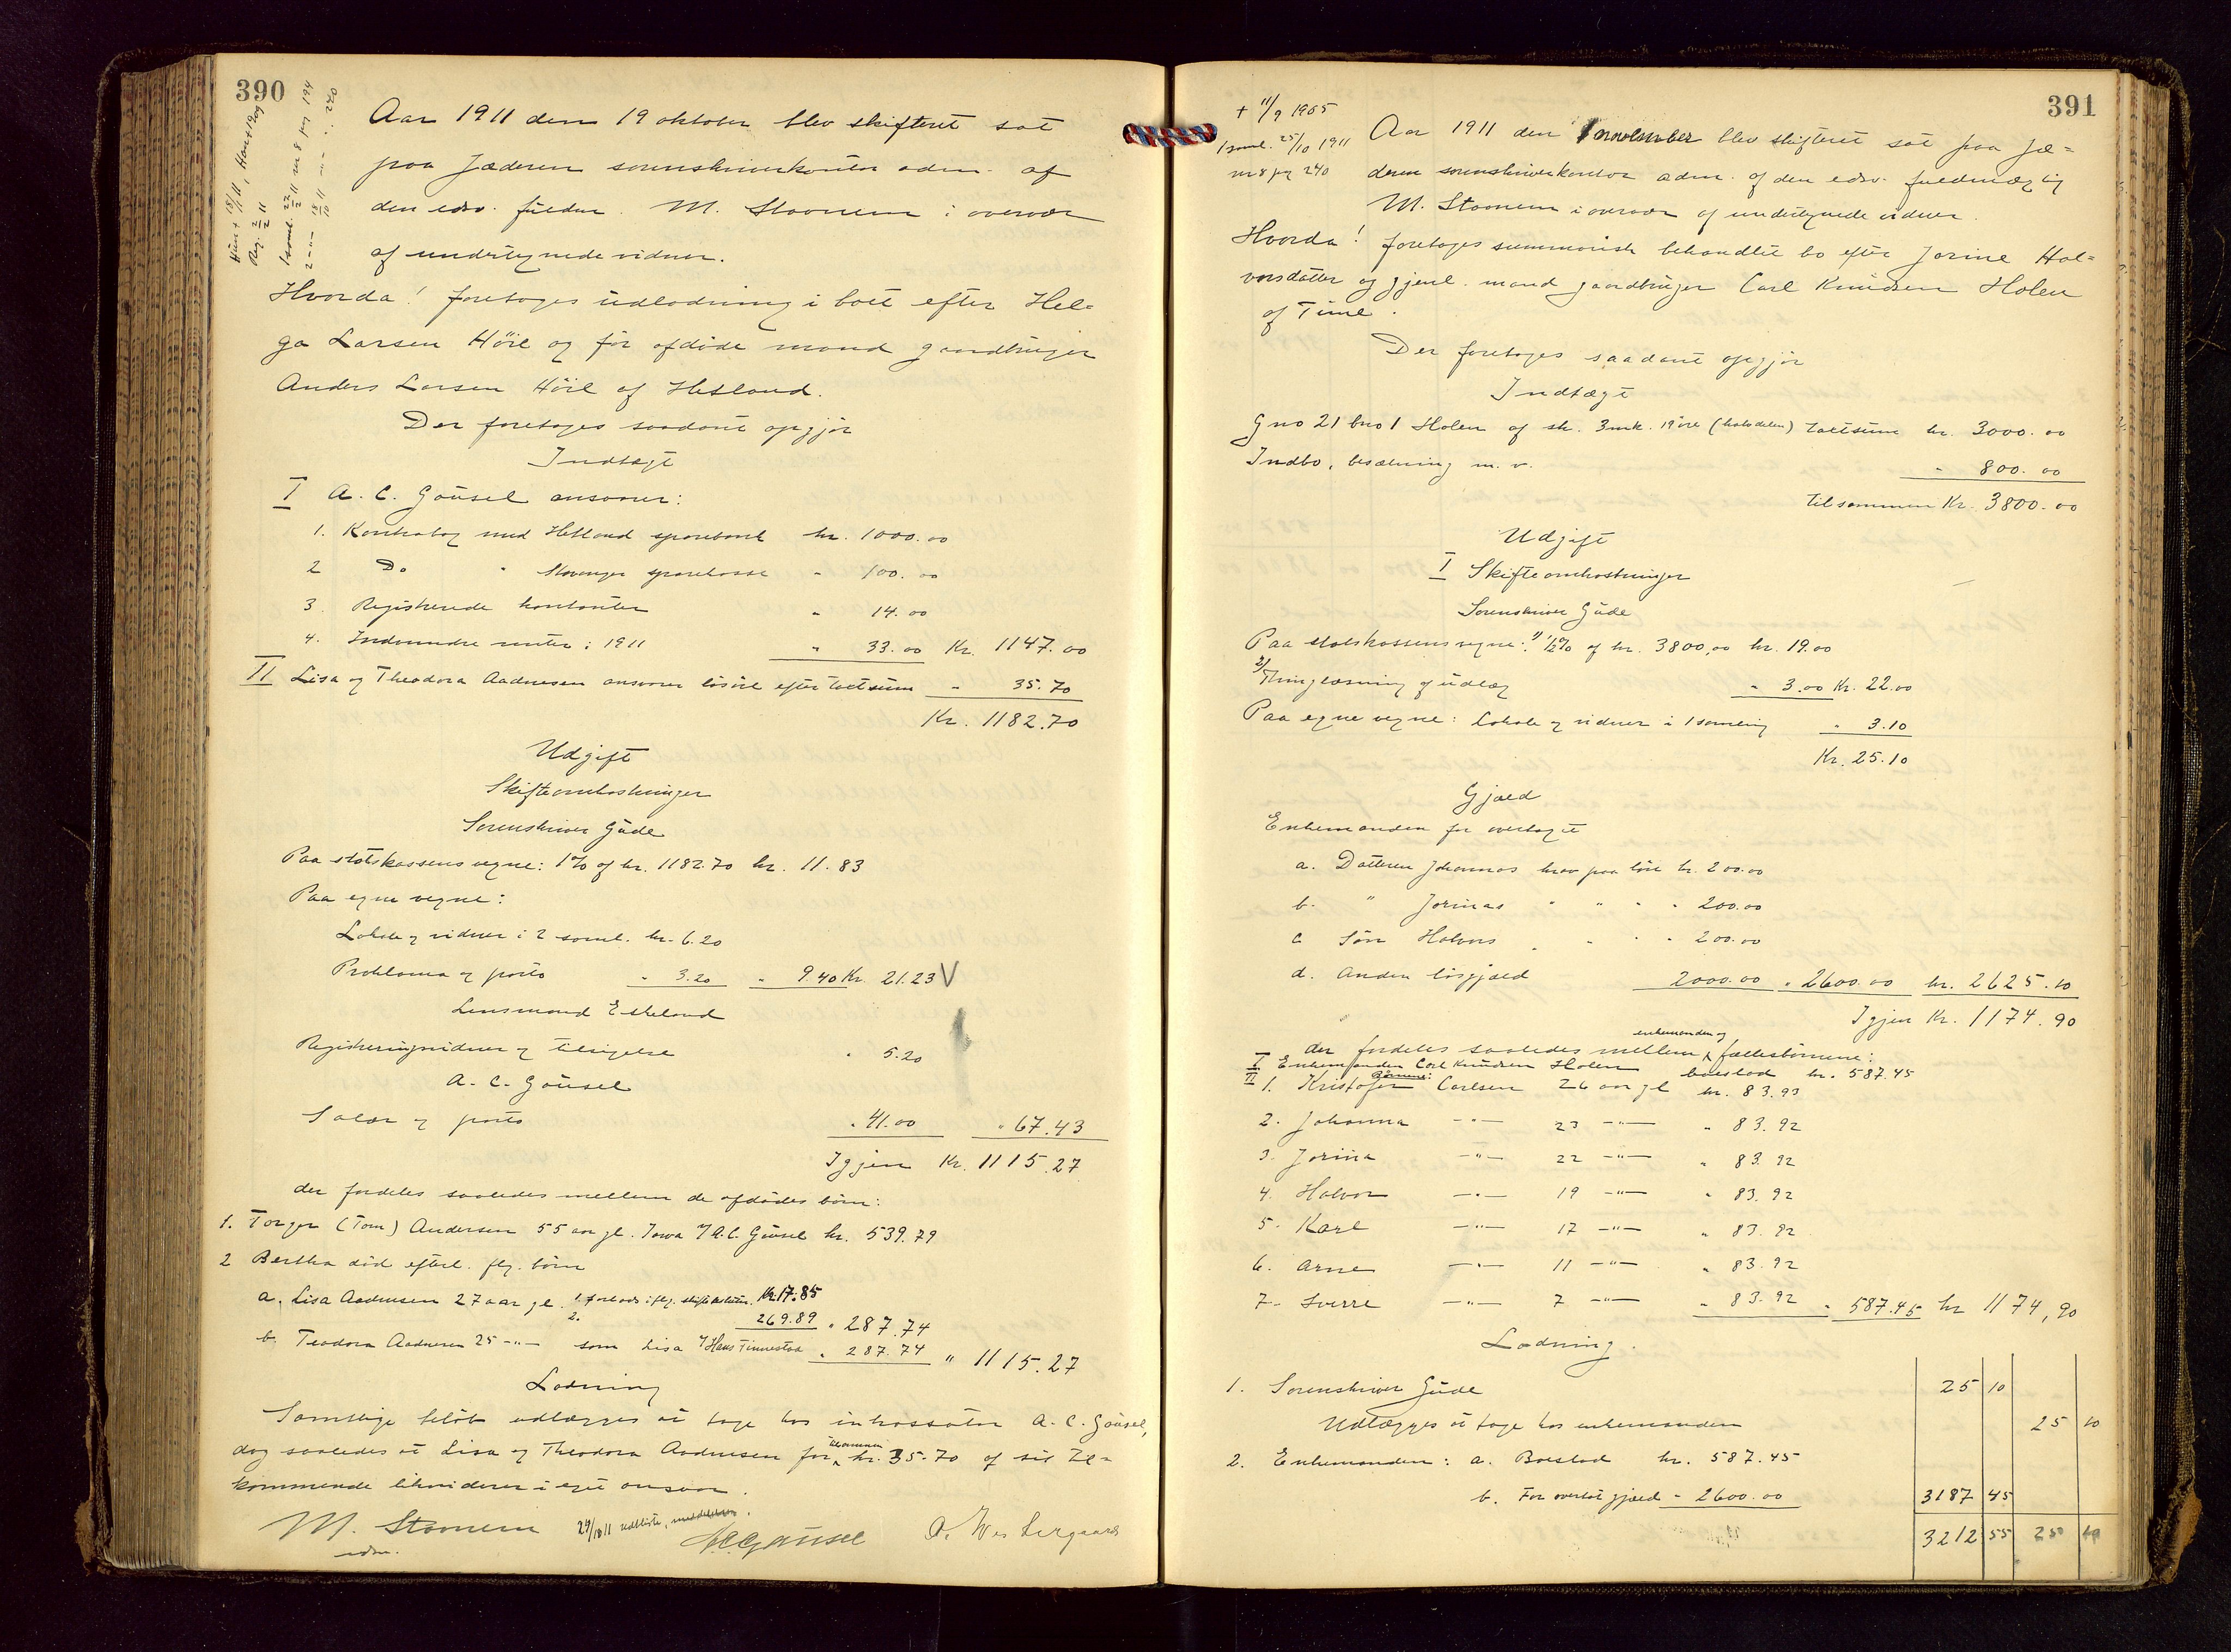 390
Hun + 18/1 11, Han + 1909
Reg. 2/2 11
1 saml. 22/2 11 nr 8 pg 194
2 -"- 19/10 11 -"- : 240
Aar 1911 den 19 oktober blev skifteret sat
paa Jæderen sorenskriverkontor adm. af
den edsv. fuldm. M. Stavnem i overvær
af undertegnede vidner.
Hvorda! foretoges udlodning i boet efter Hel-
ga Larsen Höie og før afdöde mand gaardbruger
Anders Larsen Höie af Hetland.
Der foretoges saadant opgjör
Indtægt
I A. C. Gausel ansvarer:
1. Kontrabog med Hetland sparebank kr. 1000.00
2 Do " Stavanger sparekasse " 100.00
3. Registrerede kontanter " 14.00
4. Indvundne renter i 1911 " 33.00 Kr. 1147.00
II Lisa og Theodora Aadnesen ansvarer lösöre efter taktsum " 35.70
Kr. 1182.70
Udgift
Skifteomkostninger
Sorenskriver Gude
Paa statskassens vegne: 1% af kr. 1182.70 kr. 11.83
Paa egne vegne:
Lokale og vidner i 2 saml. kr. 6.20
Proklama og porto " 3.20 " 9.40 Kr. 21.23 V
Lensmand Eskeland
Registreringsvidner og tilsigelse " 5.20
A. C. Gausel
Salær og porto " 41.00 " 67.43
Igjen Kr. 1115.27
der fordeles saaledes mellem de afdödes börn:
1. Torger (Tom) Andersen 55 aar gl. Iowa v/ A. C. Gausel kr. 539.79
2 Bertha död efterl. flg. börn
a. Lisa Aadnesen 27 aar gl. 1. forlods iflg. skiftets slutn. Kr. 17.85
2. 269.89 " 287.74
b. Teodora Aadnesen 25 -"- som Lisa v/ Hans Tinnestad " 287.74 " 1115.27
Lodning
Samtlige beløb udlægges at tage hos inkassator A. C. Gausel,
dog saaledes at Lisa og Theodora Aadnesen for tilsammen kr. 35.70 af sit til-
kommende likviderer i eget ansvar.
M. Stavnem
edsv.
24/10 11 udlliste, meddelelser.
A C Gausel
A. Westergaard
391
+ 11/9 1905
1 saml. 25/10 1911
nr 8 pg 240
Aar 1911 den 1 november blev skifteret sat paa Jæ-
deren sorenskriverkontor adm. af den edsv. fuldmægtig
M. Stavnem i overvær af undertegnede vidner.
Hvorda! foretoges summarisk behandlet bo efter Jorine Hal-
vorsdatter og gjenl. mand gaardbruger Carl Knudsen Holen
af Time.
Der foretoges saadant opgjör
Indtægt
Gno 21 bno 1 Holen af sk. 3 mk. 19 öre (halvdelen) taktsum kr. 3000.00
Indbo, besætning m. v. " 800.00
tilsammen Kr. 3800.00
Udgift
I Skifteomkostninger
Sorenskriver Gude
Paa statskassens vegne: 1) 1/2% af kr. 3800,00 kr. 19.00
2) Thinglæsning af udlæg " 3.00 Kr. 22.00
Paa egne vegne: Lokale og vidner i 1 samling " 3.10
Kr. 25.10
Gjæld
Enkemanden faar overtaget
a. Datteren Johannas krav paa lön kr. 200.00
b. " Jorinas " " " " 200.00
c Sön Halvors " " " " 200.00
d. Anden lösgjæld 2000.00 " 2600.00 kr. 2625.10
Igjen Kr. 1174.90
der fordeles saaledes mellem enkemanden og fællesbörnene:
I Enkemanden Carl Knudsen Holen boeslod kr. 587.45
II Börnene:
1. Kristofer Carlsen 26 aar gl kr. 83.93
2. Johanna -"- 23 -"- " 83.92
3. Jorina -"- 22 -"- " 83.92
4. Halvor -"- 19 -"- " 83.92
5. Karl -"- 17 -"- " 83.92
6. Arne -"- 11 -"- " 83.92
7. Sverre -"- 7 -"- " 83.92 " 587.45 kr 1174,90
Lodning.
1. Sorenskriver Gude 25 10
Udlægges at tage hos enkemanden 25 10
2. Enkemanden: a. Boeslod kr. 587.45
b. For overtat gjæld - 2600.00 3187 45
3212 55 25 10